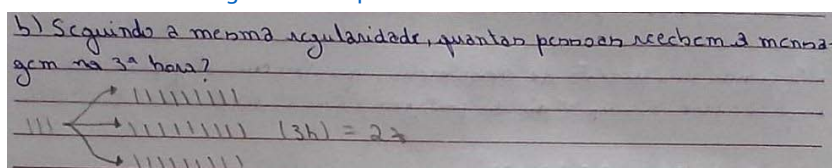 b) Seguindo a mesma regularidade, quantas pessoas recebem a mensa-
gem na 3ª hora?
| | | | | | | | |
| | | | | | | | | | | | (3h) = 27
| | | | | | | | |